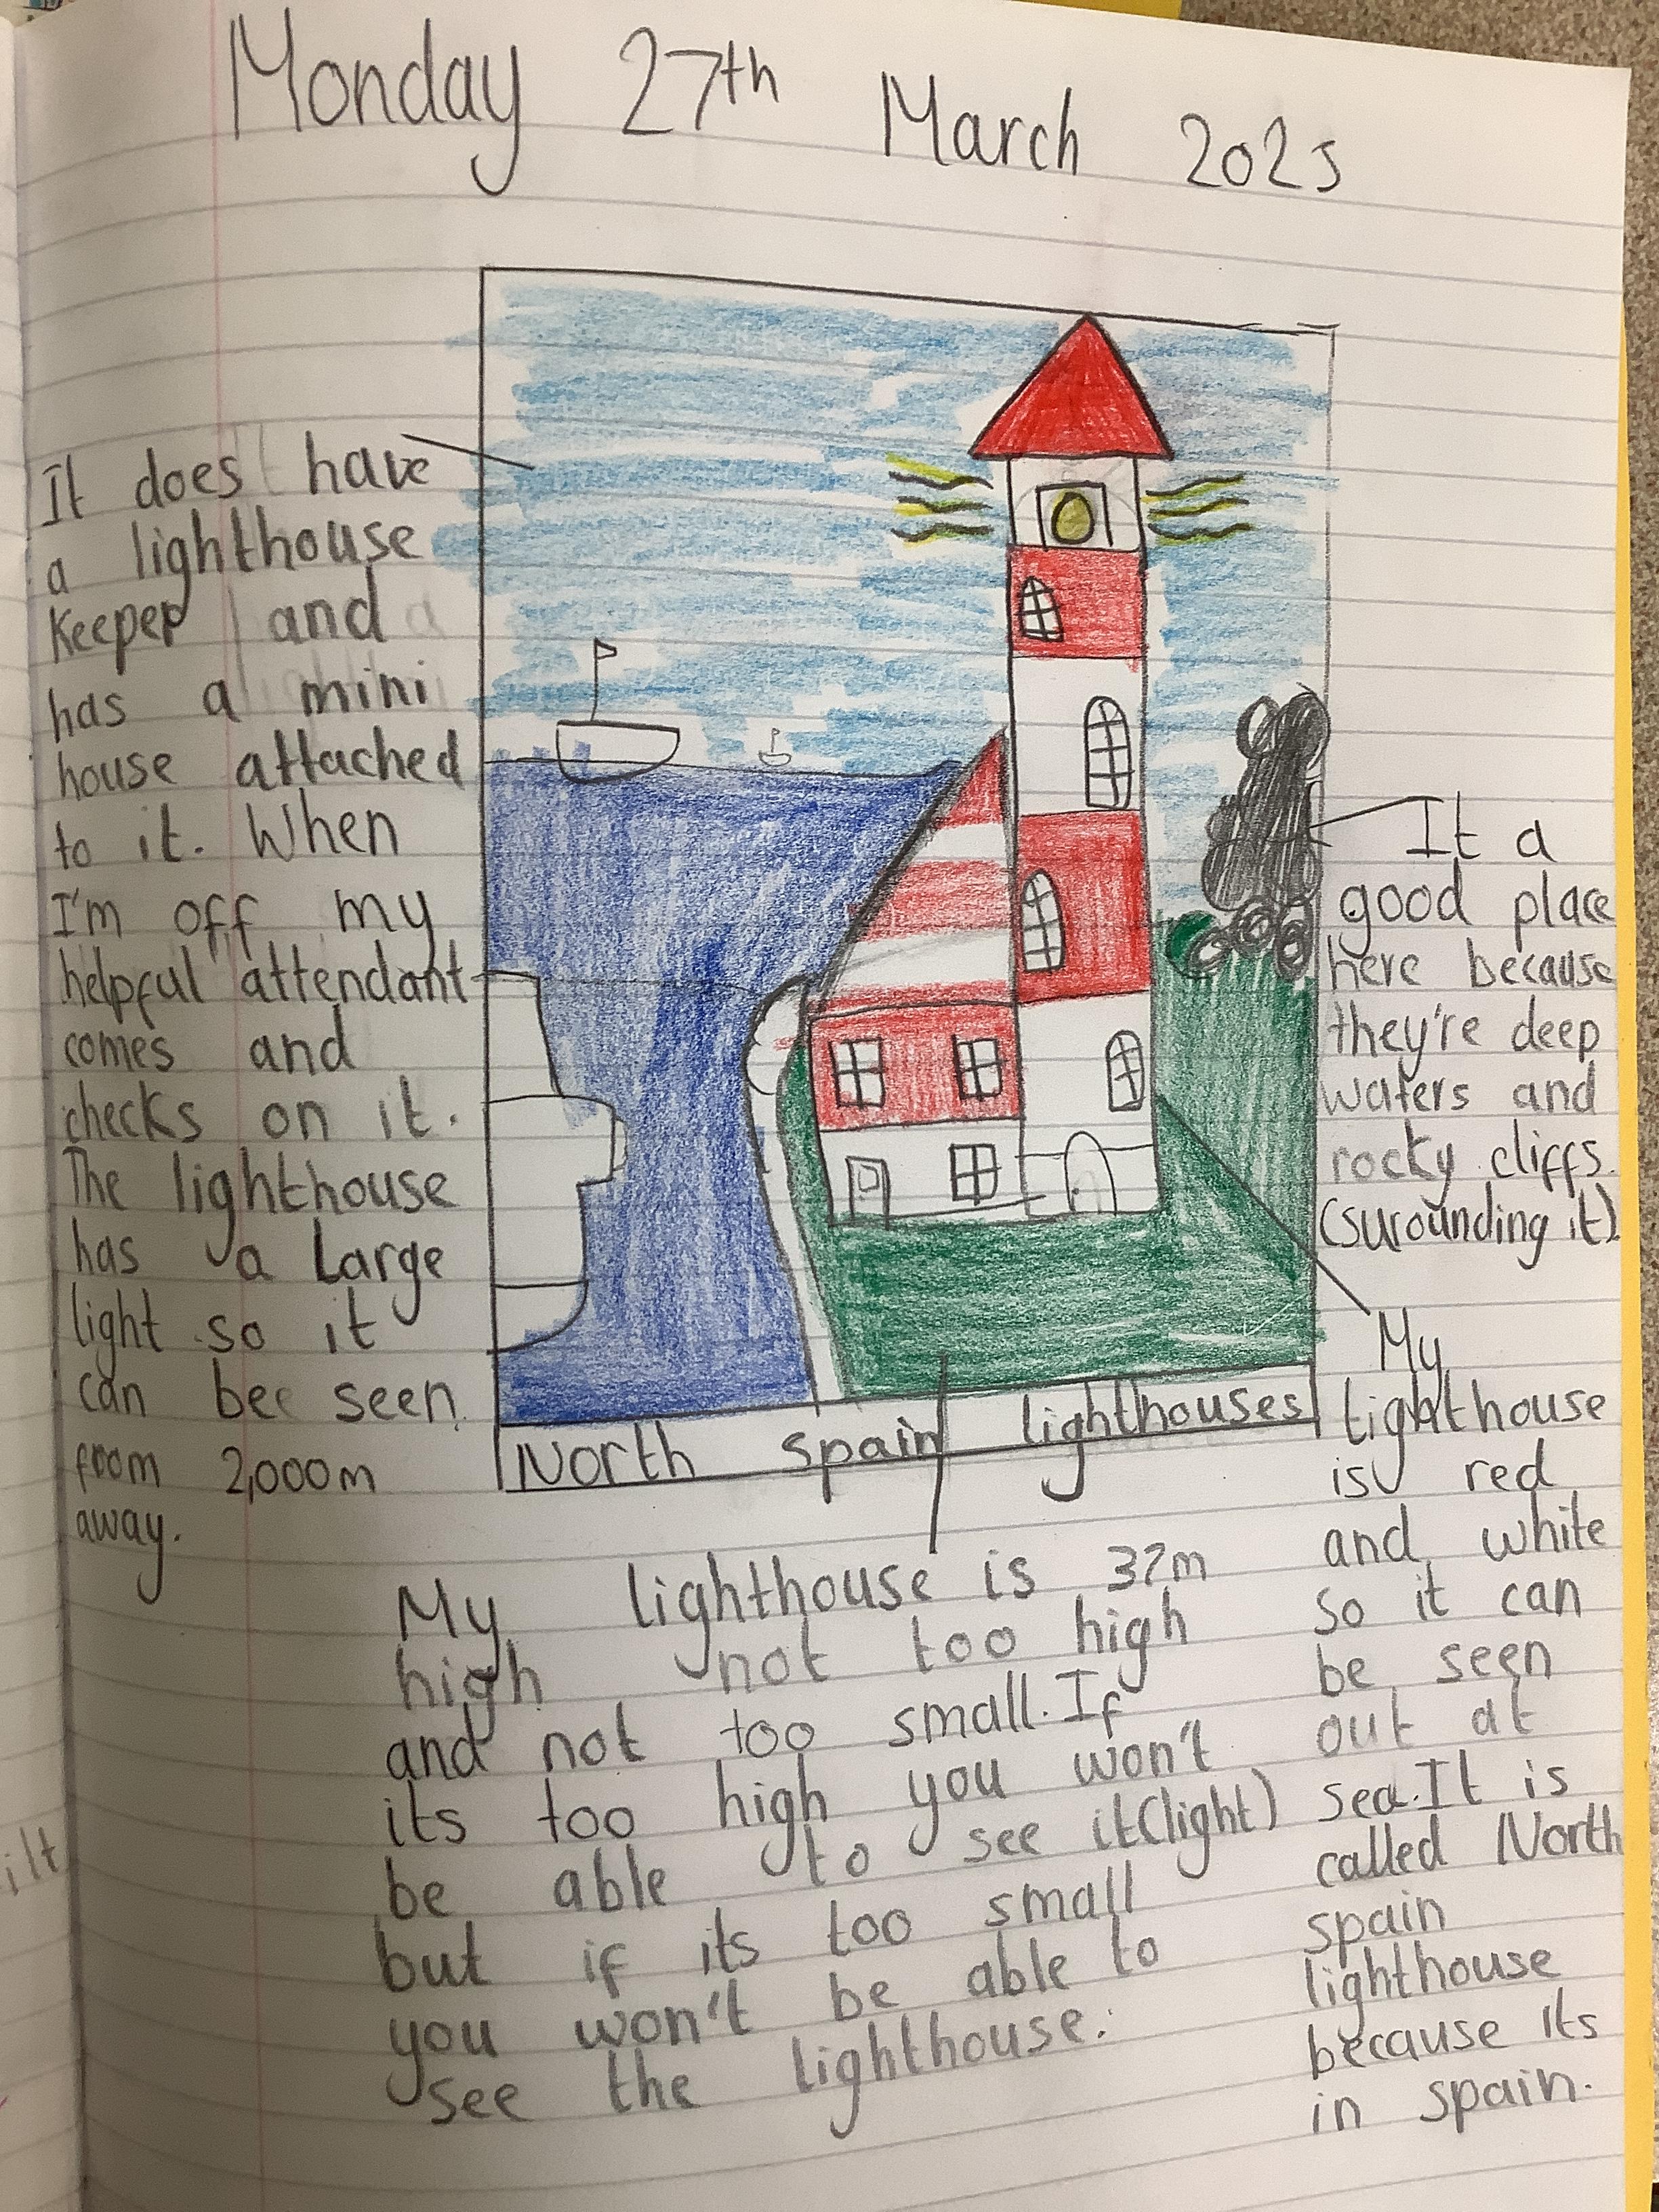 Monday 27th March 2023
It does have
a lighthouse
Keeper and
has a mini
house attached
to it. When
I'm off my
helpful attendant
comes and
checks on it.
The lighthouse
has a Large
light so it
can bee seen
from 2,000m
away.
It a
good place
here because
they're deep
waters and
rocky cliffs.
(surounding it).
My
lighthouse
is red
and white
so it can
be seen
out at
sea. It is
called North
spain
lighthouse
because its
in spain.
North spain lighthouses
My lighthouse is 37m
high not too high
and not too small. If
its too high you won't
be able to see it (light)
but if its too small
you won't be able to
see the lighthouse.
ilt